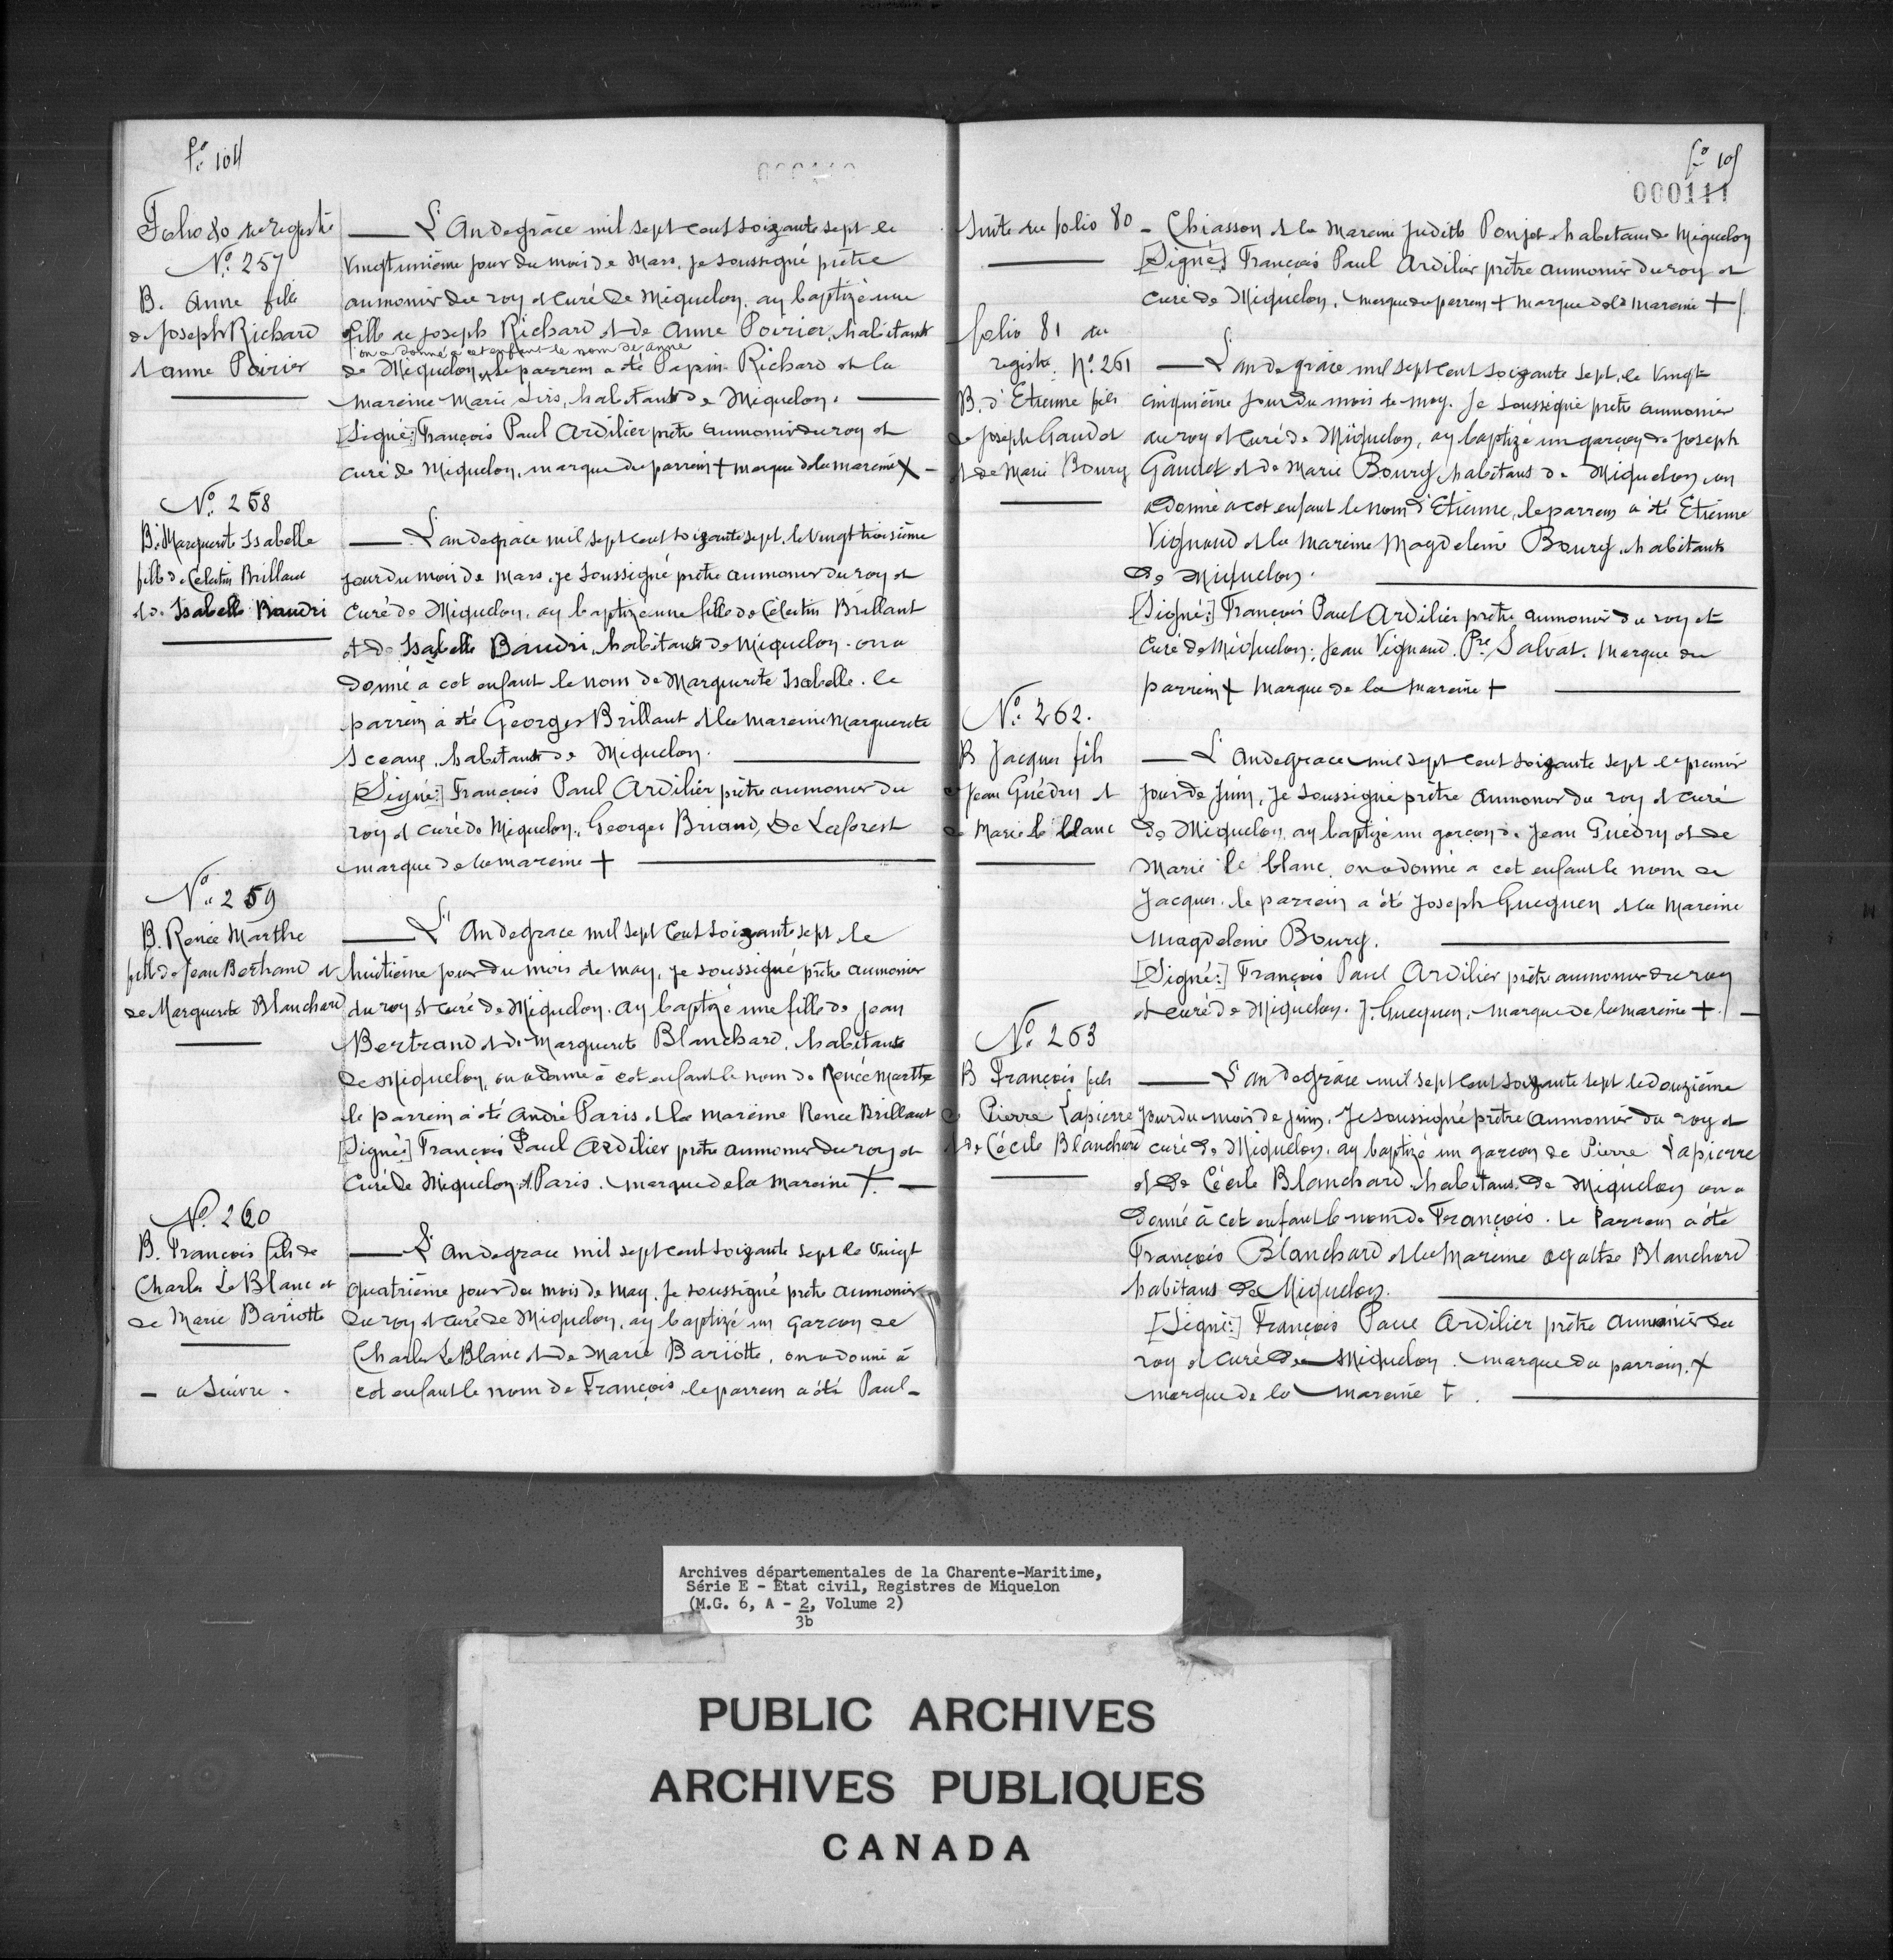 fo. 104
Folio 80 du registre
No. 257
B. Anne fille
de Joseph Richard
et anne Poirier
L'An de grâce mil sept cent soixante sept le
vingt unième jour du mois de Mars, je soussigné prêtre
aumonier du roy et curé de Miquelon, ay baptizé une
fille de joseph Richard et de Anne Poirier, habitants
on a donné à cet enfant le nom de anne
de Miquelon, le parrein a été Papin Richard et la
mareine Marie Sirs, habitants de Miquelon.
[Signé:] François Paul Ardilier prêtre aumonier du roy et
curé de Miquelon, marque du parrein + marque de la mareine X -
No. 258
B. Marguerite Isabelle
fille de Célestin Brillant
et de Isabelle Baudri
L'an de grâce mil sept cent soixante sept, le vingt troisième
jour du mois de Mars, je soussigné prêtre aumonier du roy et
curé de Miquelon, ay baptizé une fille de Célestin Brillant
et de Isabelle Baudri, habitants de Miquelon. on a
donné à cet enfant le nom de Marguerite Isabelle. le
parrein a été Georges Brillant et la mareine Marguerite
Sceaux, habitants de Miquelon.
[Signé:] François Paul Ardilier prêtre aumonier du
roy et curé de Miquelon, Georges Briand, De Laforest
marque de la mareine +
No. 259
B. Renée Marthe
fille de Jean Bertrand et
de Marguerite Blanchard
L'An de grâce mil sept cent soixante sept, le
huitième jour du mois de may, je soussigné prêtre aumonier
du roy et curé de Miquelon. ay baptizé une fille de jean
Bertrand et de Marguerite Blanchard, habitants
de Miquelon, on a donné à cet enfant le nom de Renée Marthe
le parrein a été andré Paris et la mareine Renée Brillant
[Signé:] François Paul Ardilier prêtre aumonier du roy et
curé de Miquelon, A. Paris. marque de la mareine +. -
No. 260
B. François fils de
Charles Le Blanc et
de Marie Bariotte
- a suivre.
L'An de grace mil sept cent soixante sept le vingt
quatrième jour du mois de May. je soussigné prêtre aumonier
du roy et curé de Miquelon, ay baptizé un garcon de
Charles Le Blanc et de Marie Bariotte, on a donné à
cet enfant le nom de François le parrein a été Paul-
fo. 105
000111
Suite du folio 80 - Chiasson et la Mareine Judith Ponjot habitans de Miquelon
[Signé:] François Paul Ardilier prêtre aumonier du roy et
curé de Miquelon, marque du parrein + marque de la mareine +
folio 81 du
registre. No. 261
B. d'Etienne fils
de joseph Gaudet
et de Marie Bourg
L'an de grâce mil sept cent soixante sept, le vingt
cinquième jour du mois de may. Je soussigné prêtre aumonier
du roy et curé de Miquelon, ay baptizé un garçon de joseph
Gaudet et de Marie Bourg, habitans de Miquelon, on
a donné a cet enfant le nom d'Etienne, le parrein a été Etienne
Vignaud et la mareine Magdeleine Bourg, habitants
de Miquelon.
[Signé:] François Paul Ardilier prêtre aumonier du roy et
curé de Miquelon; Jean Vignaud. Pre Salvat. Marque du
parrein + Marque de la Mareine +
No. 262.
B Jacques fils
de Jean Guédry et
de Marie le blanc
L'An de grace mil sept cent soixante sept le premier
jour de juin, je soussigné prêtre aumonier du roy et curé
de Miquelon, ay baptizé un garçon de Jean Guédry et de
Marie le blanc, on a donné a cet enfant le nom de
Jacques. le parrein a été Joseph Gueguen et la Mareine
Magdeleine Bourg.
[Signé:] François Paul Ardilier prêtre aumonier du roy
et curé de Miquelon. J. Gueguen, Marque de la mareine +. -
No. 263
B François fils
de Pierre Lapierre
et de Cécile Blanchard
L'an de grâce mil sept cent soixante sept le douzième
jour du mois de juin, Je soussigné prêtre aumonier du roy et
curé de Miquelon, ay baptizé un garcon de Pierre Lapierre
et de Cécile Blanchard habitans de Miquelon on a
donné à cet enfant le nom de François. Le Parrein a été
François Blanchard et la Mareine agathe Blanchard
habitans de Miquelon.
[Signé:] François Paul Ardilier prêtre aumônier du
roy et curé de Miquelon. marque du parrein. +
marque de la mareine +.
Archives départementales de la Charente-Maritime,
Série E - Etat civil, Registres de Miquelon
(M.G. 6, A - 2, Volume 2)
3b
PUBLIC ARCHIVES
ARCHIVES PUBLIQUES
CANADA